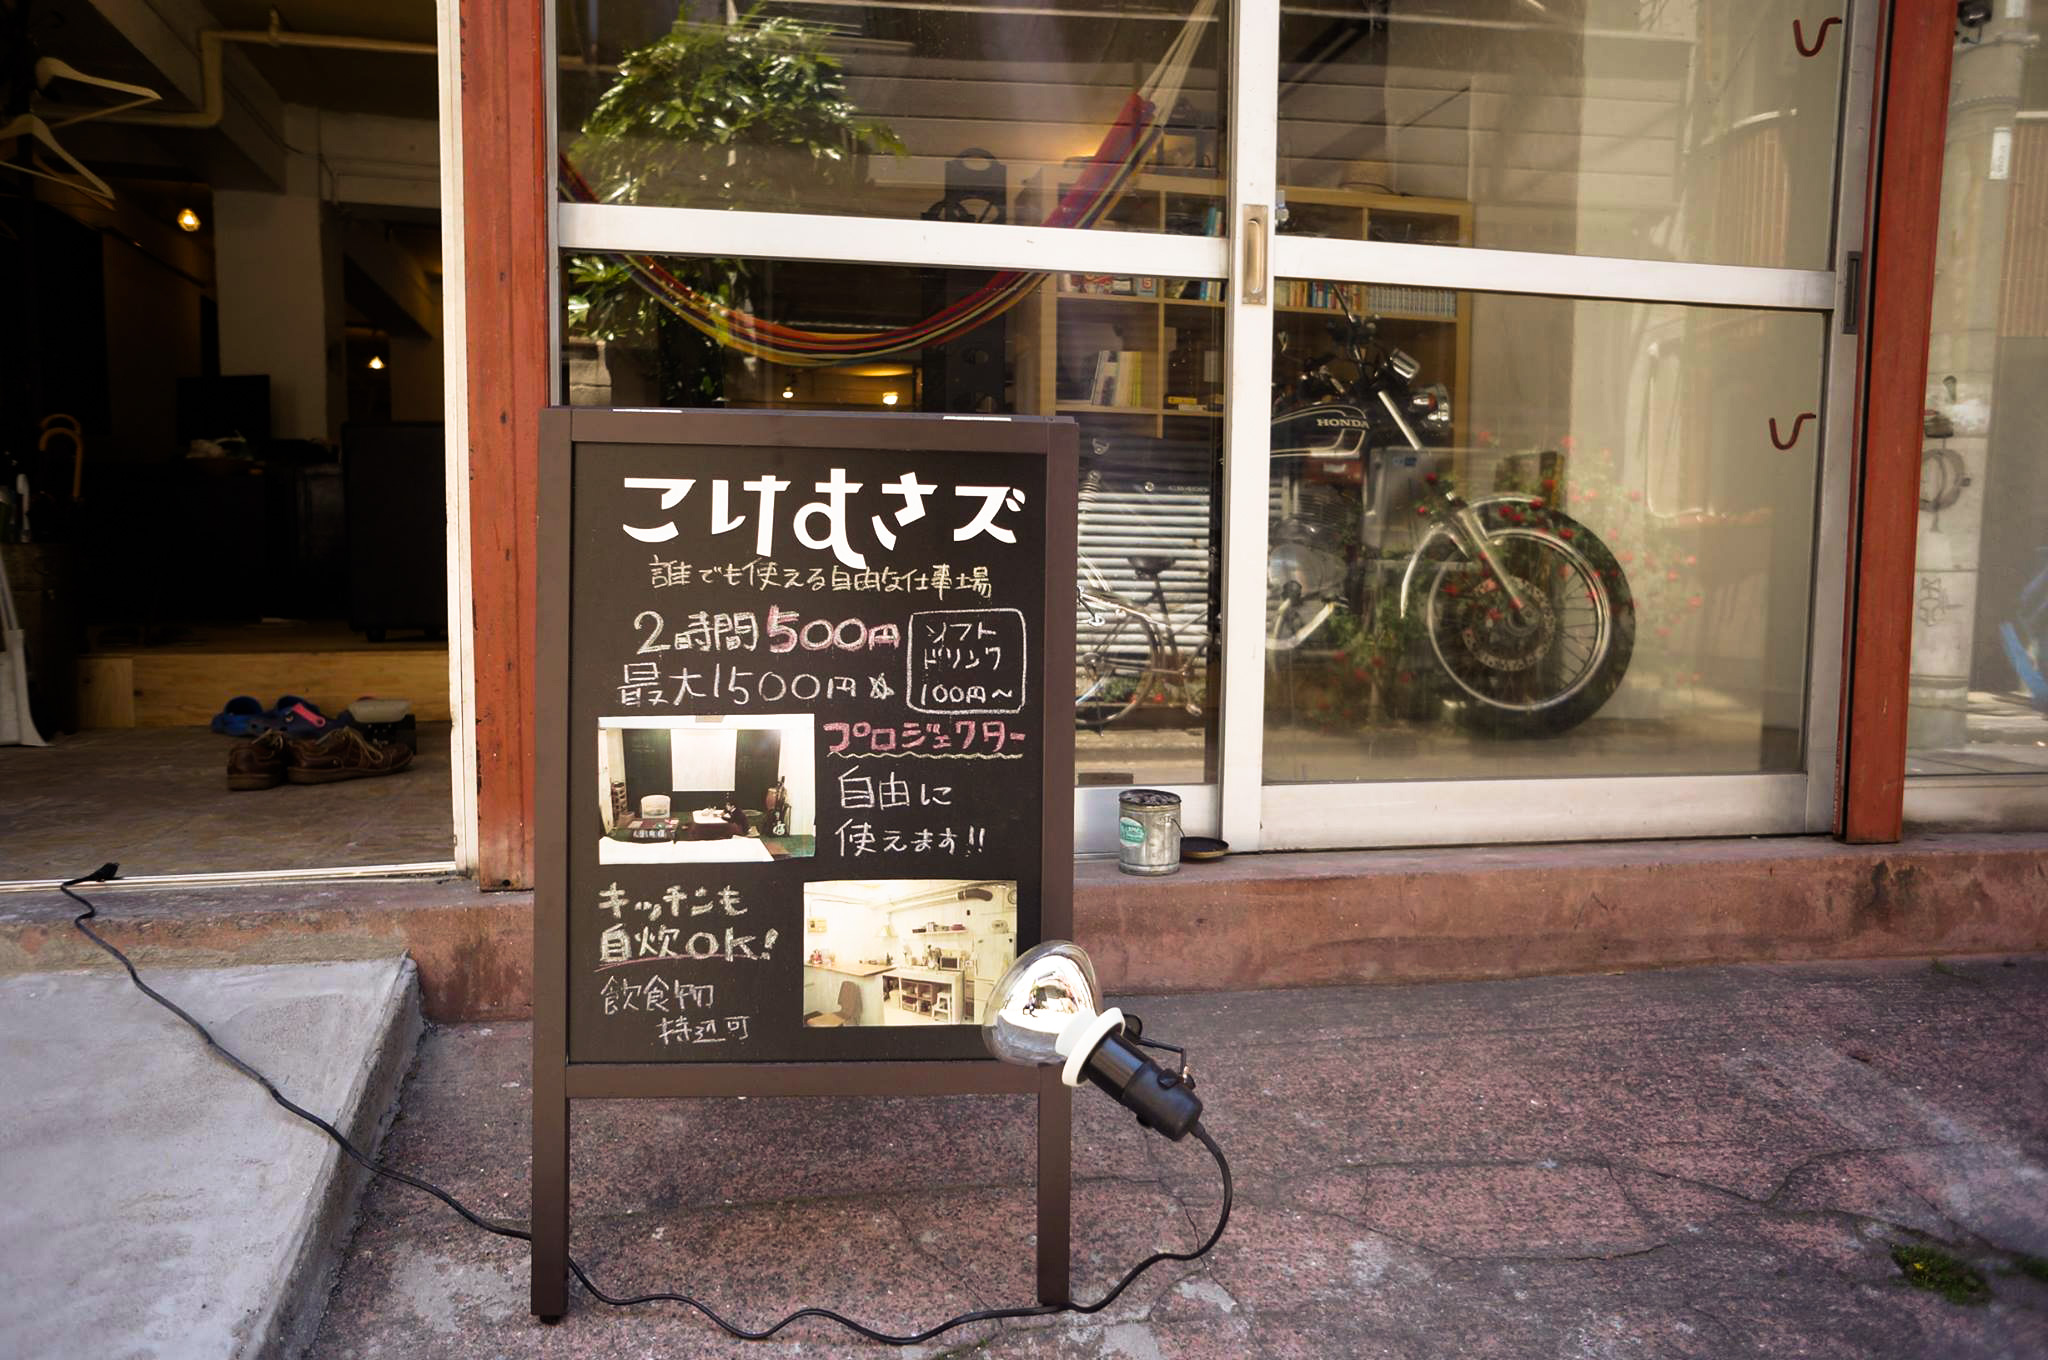 こけむさズ
誰でも使える自由な仕事場
2時間500円
最大1500円
ソフト
ドリンク
100円〜
プロジェクター
自由に
使えます!!
キッチンも
自炊OK!
飲食物
持込可
HONDA